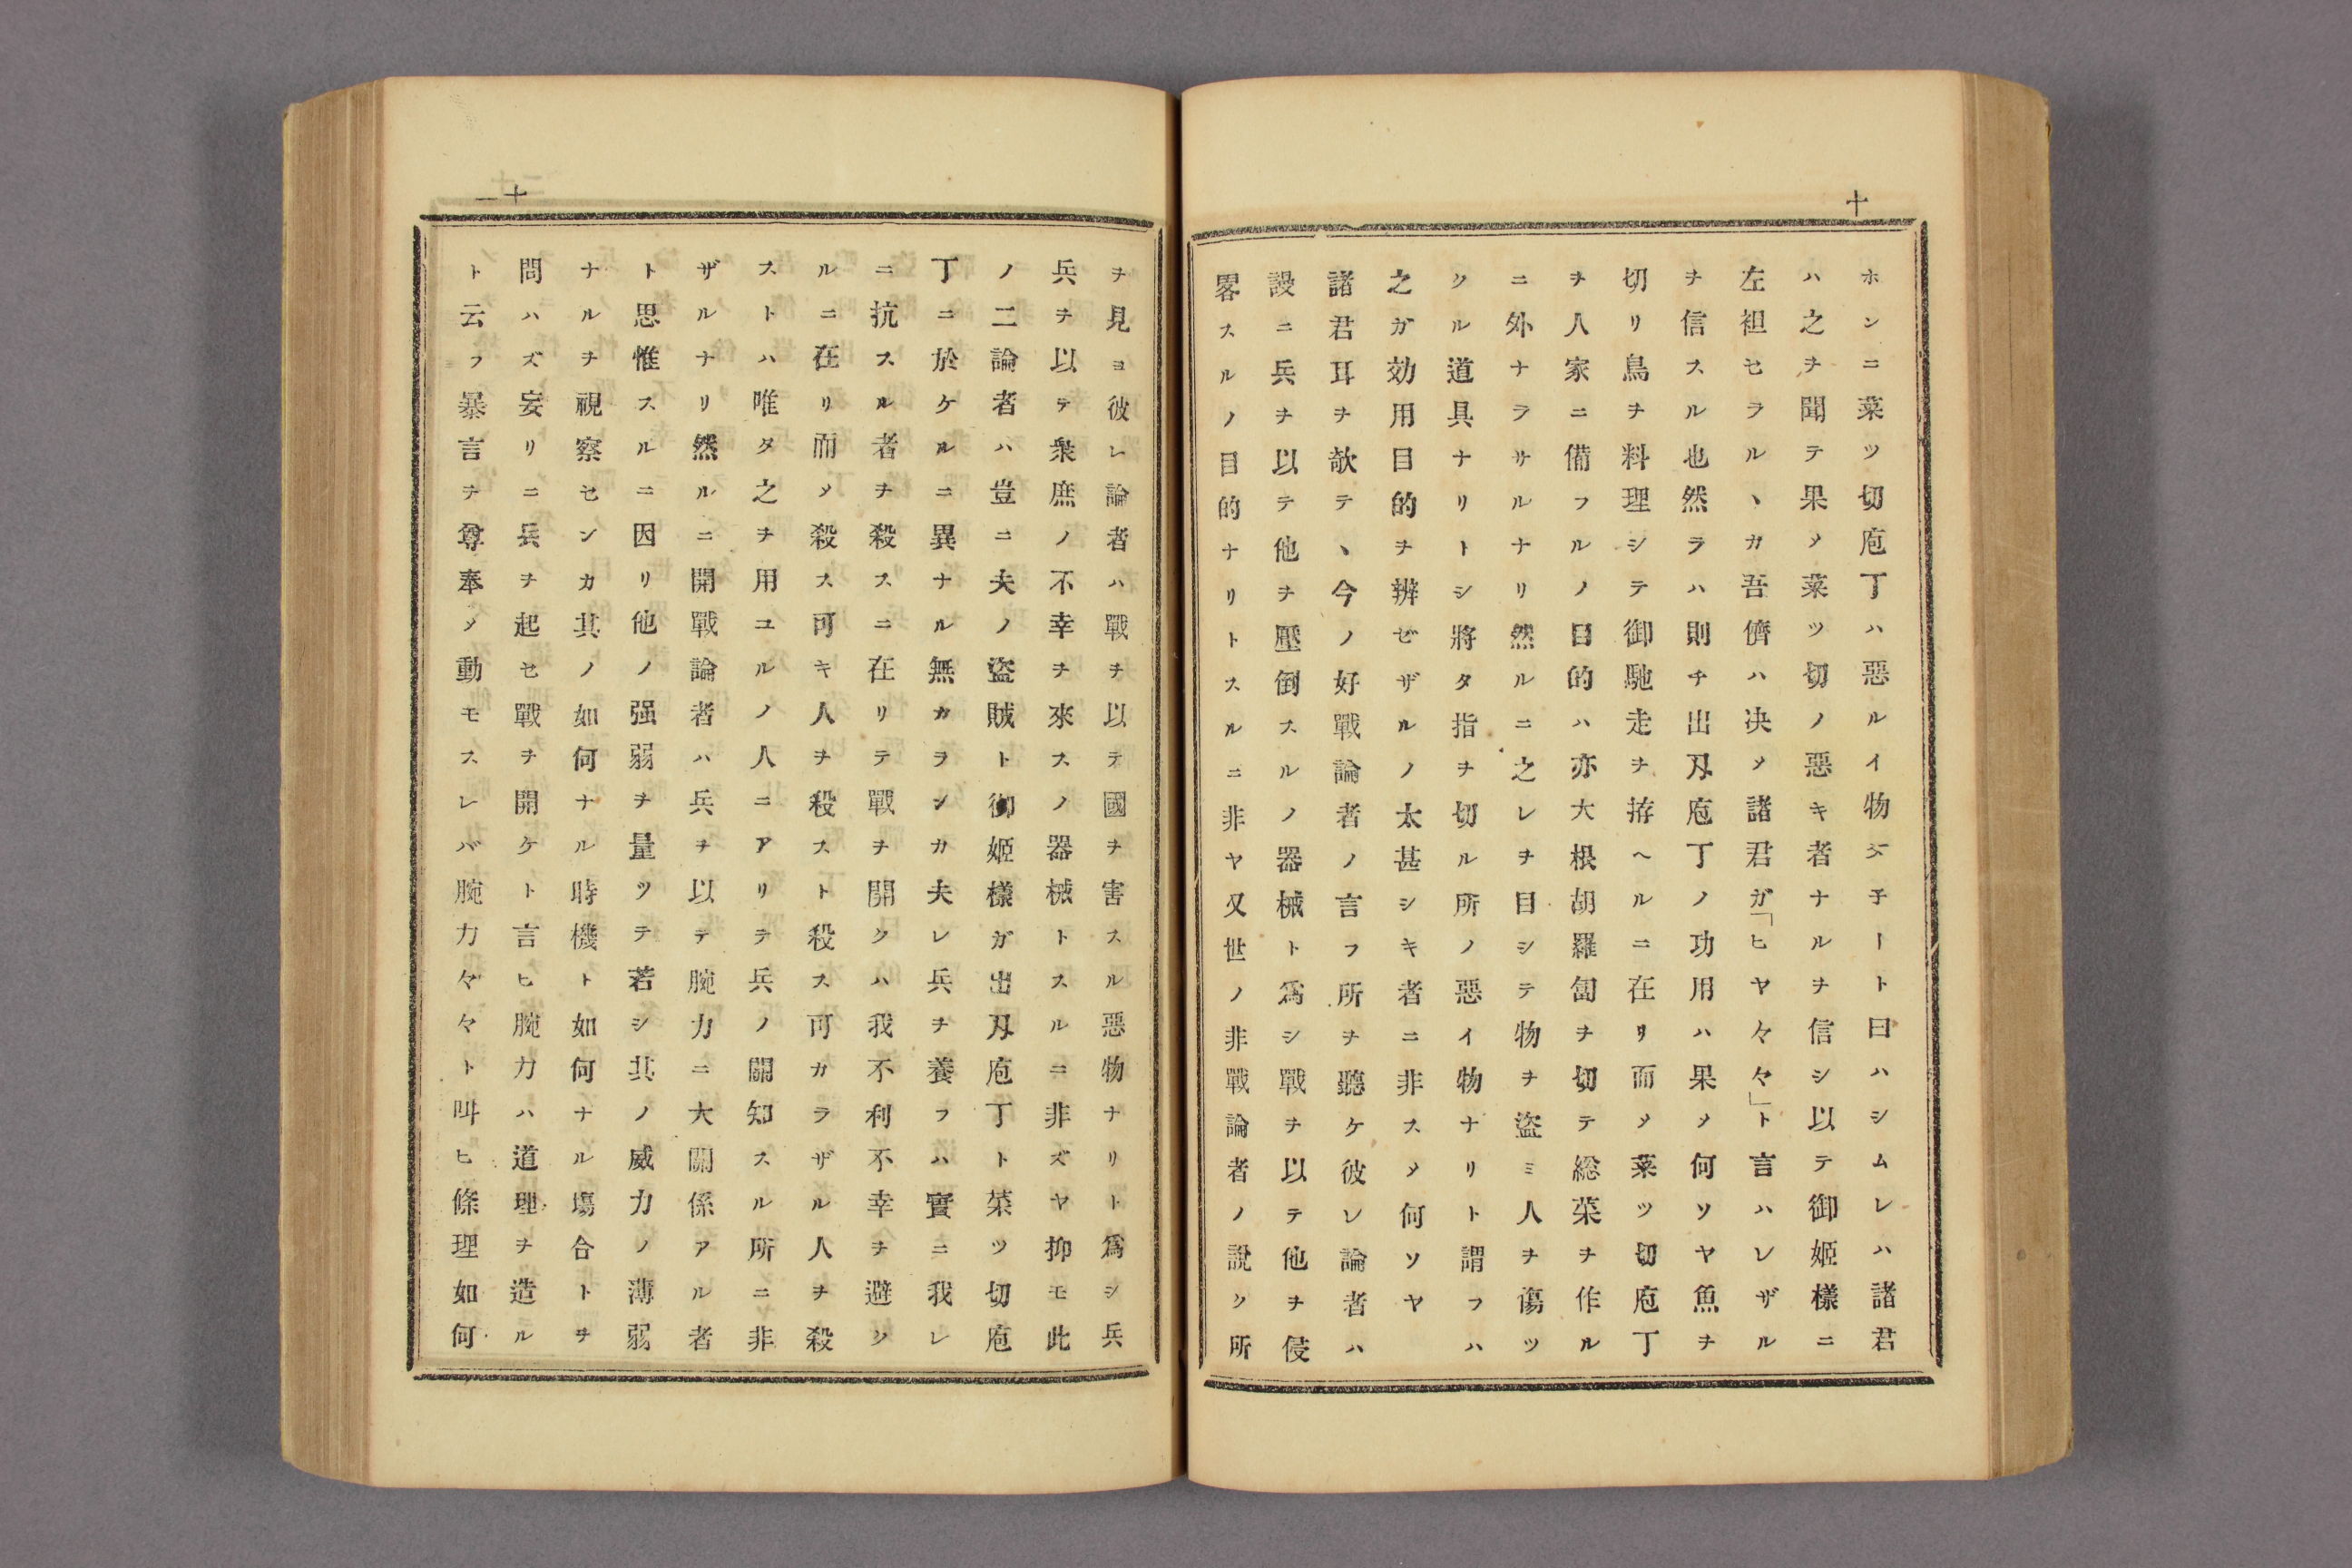 十
ホンニ菜ッ切庖丁ハ惡ルイ物ダ子ート曰ハシムレハ諸君
ハ之ヲ聞テ果メ菜ッ切ノ惡キ者ナルヲ信シ以テ御姫樣ニ
左袒セラルヽカ吾儕ハ决メ諸君ガ「ヒヤ々々」ト言ハレザル
ヲ信スル也然ラハ則チ出刄庖丁ノ功用ハ果メ何ソヤ魚ヲ
切リ鳥ヲ料理シテ御馳走ヲ拵ヘルニ在リ而メ菜ッ切庖丁
ヲ人家ニ備フルノ目的ハ亦大根胡羅匐ヲ切テ総菜ヲ作ル
ニ外ナラサルナリ然ルニ之レヲ目シテ物ヲ盜ミ人ヲ傷ツ
クル道具ナリトシ將タ指ヲ切ル所ノ惡イ物ナリト謂フハ
之ガ効用目的ヲ辨ゼザルノ太甚シキ者ニ非スメ何ソヤ
諸君耳ヲ欹テヽ今ノ好戰論者ノ言フ所ヲ聽ケ彼レ論者ハ
設ニ兵ヲ以テ他ヲ壓倒スルノ器械ト爲シ戰ヲ以テ他ヲ侵
畧スルノ目的ナリトスルニ非ヤ又世ノ非戰論者ノ說ク所
十一
ヲ見ヨ彼レ論者ハ戰ヲ以テ國ヲ害スル惡物ナリト爲シ兵
兵ヲ以テ衆庶ノ不幸ヲ來スノ器械トスルニ非ズヤ抑モ此
ノ二論者ハ豈ニ夫ノ盜賊ト御姬樣ガ出刄庖丁ト菜ッ切庖
丁ニ於ケルニ異ナル無カヲンカ夫レ兵ヲ養フハ實ニ我レ
ニ抗スル者ヲ殺スニ在リテ戰ヲ開クハ我不利不幸ヲ避ク
ルニ在リ而メ殺ス可キ人ヲ殺スト殺ス可カラザル人ヲ殺
ストハ唯タ之ヲ用ユルノ人ニアリテ兵ノ關知スル所ニ非
ザルナリ然ルニ開戰論者ハ兵ヲ以テ腕力ニ大關係アル者
ト思惟スルニ因リ他ノ强弱ヲ量ツテ若シ其ノ威力ノ薄弱
ナルヲ視察センカ其ノ如何ナル時機ト如何ナル塲合トヲ
問ハズ妄リニ兵ヲ起セ戰ヲ開ケト言ヒ腕力ハ道理ヲ造ル
ト云フ暴言ヲ尊奉メ動モスレバ腕力々々ト叫ヒ條理如何